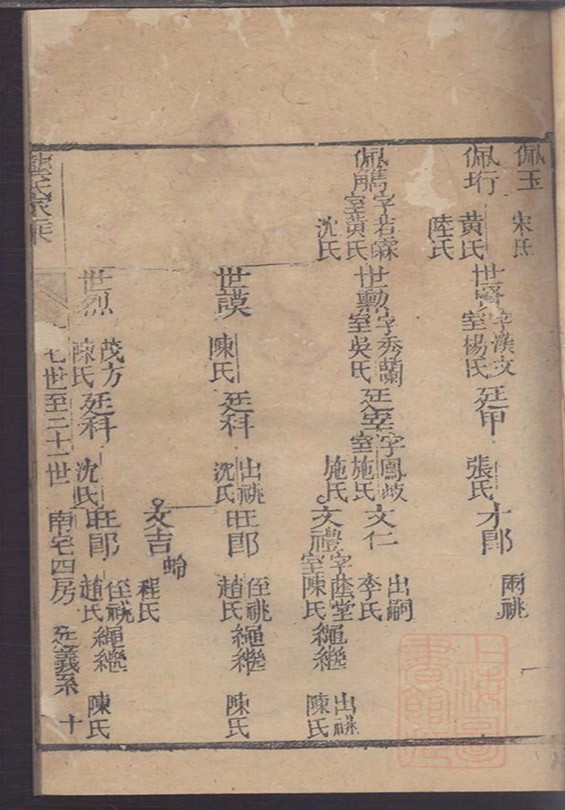 佩玉 宋氏
佩珩 黃氏 陸氏 世賢 字漢文 室楊氏 廷甲 張氏 才郎 兩祧
佩鶴 字若霖 室黃氏 沈氏 世勳 字秀蘭 室吳氏 字鳳岐 室施氏 施氏 文仁 出嗣 李氏
文禮 字蔭堂 室陳氏 繩繼 出祧 陳氏
世謨 陳氏 廷科 出祧 沈氏 旺郎 侄祧 趙氏 繩繼 陳氏
文吉 蛉 程氏
世烈 茂方 陳氏 廷科 沈氏 旺郎 侄祧 趙氏 繩繼 陳氏
氏家乘 七世至二十一世 南宅四房 廷義系 十